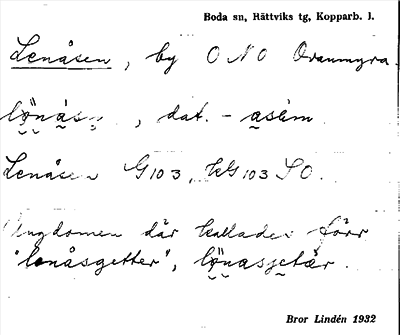 Boda sn, Rättviks tg, Kopparb. l.
Lenåsen, by ONO Ovanmyra.
lö̯nås̯n̥, dat. - a̯säm
Lenåsen G103, KG103 SO.
Ungdomen där kallades förr
"lenåsgetter", lö̯nas̯jetär.
Bror Lindén 1932